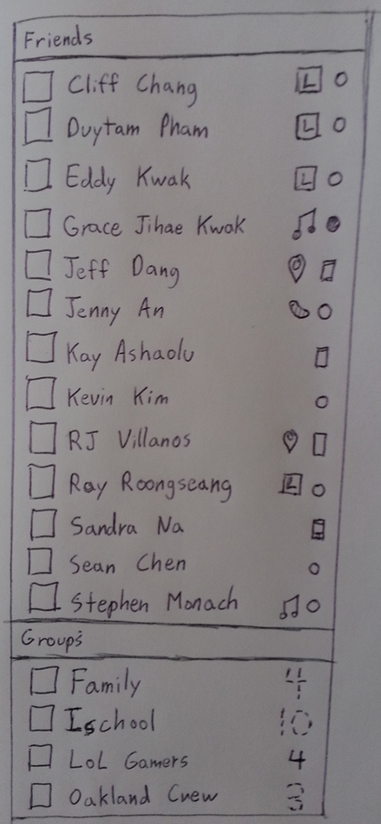 Friends
Cliff Chang L
Duytam Pham L
Eddy Kwak L
Grace Jihae Kwak
Jeff Dang
Jenny An
Kay Ashaolu
Kevin Kim
RJ Villanos
Ray Roongseang L
Sandra Na
Sean Chen
Stephen Monach
Groups
Family 4
Ischool 10
LoL Gamers 4
Oakland Crew 3